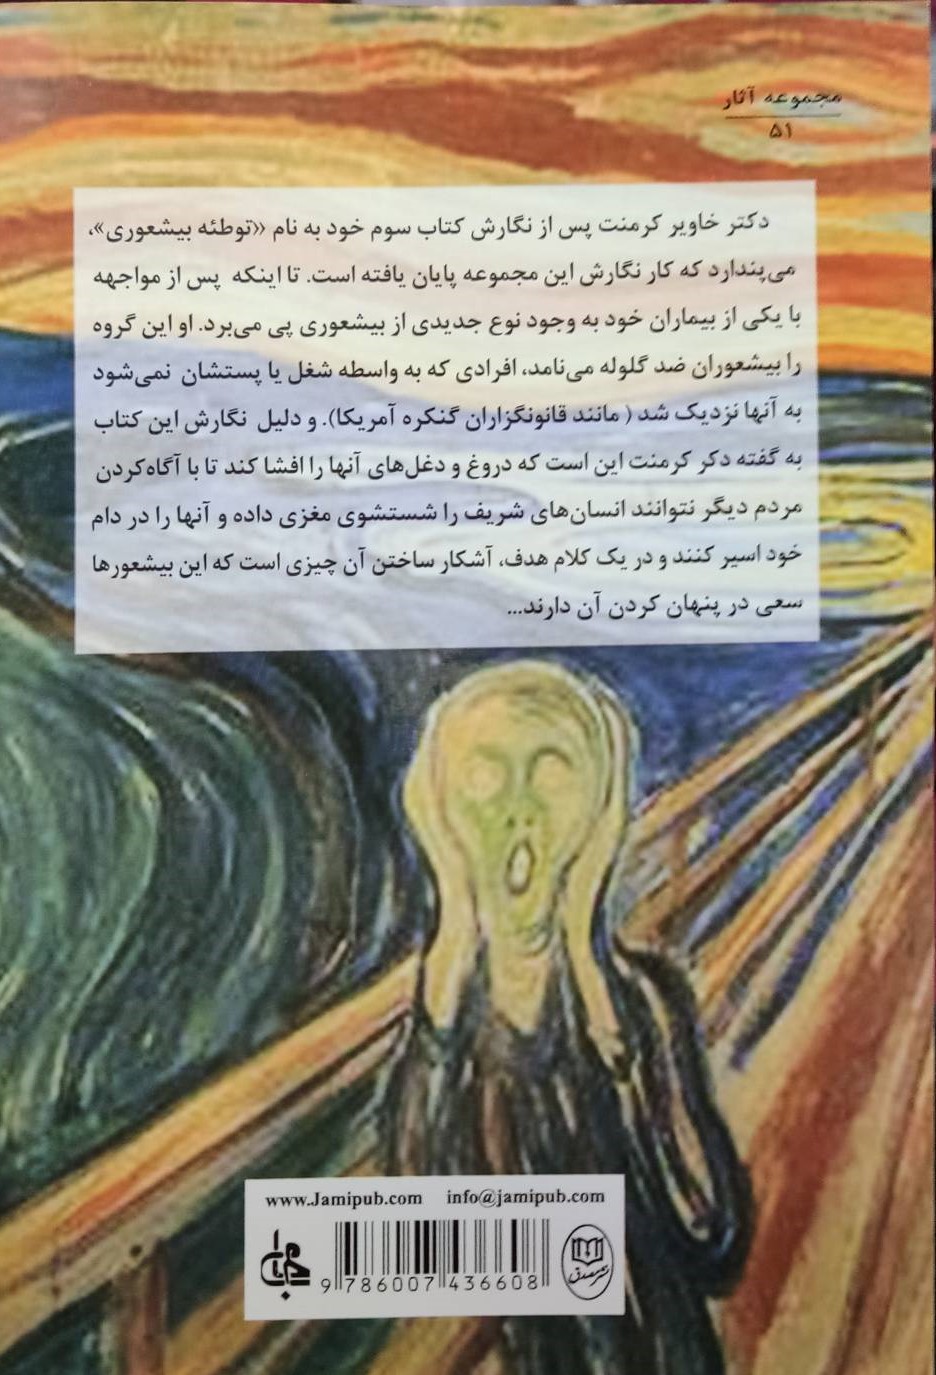 مجموعه آثار
۵۱
دکتر خاویر کرمنت پس از نگارش کتاب سوم خود به نام «توطئه بیشعوری»،
می‌پندارد که کار نگارش این مجموعه پایان یافته است. تا اینکه پس از مواجهه
با یکی از بیماران خود به وجود نوع جدیدی از بیشعوری پی می‌برد. او این گروه
را بیشعوران ضد گلوله می‌نامد، افرادی که به واسطه شغل یا پستشان نمی‌شود
به آنها نزدیک شد ( مانند قانونگزاران گنکره آمریکا). و دلیل نگارش این کتاب
به گفته دکر کرمنت این است که دروغ و دغل‌های آنها را افشا کند تا با آگاه‌کردن
مردم دیگر نتوانند انسان‌های شریف را شستشوی مغزی داده و آنها را در دام
خود اسیر کنند و در یک کلام هدف، آشکار ساختن آن چیزی است که این بیشعورها
سعی در پنهان کردن آن دارند...
www.Jamipub.com info@jamipub.com
9 786007 436608
جامی
نشر مصدق